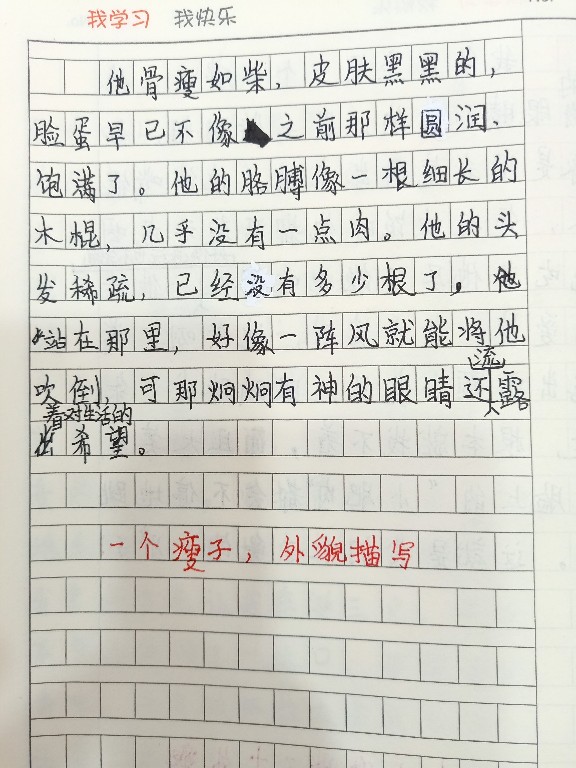 我学习 我快乐
他骨瘦如柴，皮肤黑黑的，
脸蛋早已不像之前那样圆润、
饱满了。他的胳膊像一根细长的
木棍，几乎没有一点肉。他的头
发稀疏，已经没有多少根了。他
站在那里，好像一阵风就能将他
吹倒，可那炯炯有神的眼睛还流露
出着对生活的希望。
一个瘦子，外貌描写